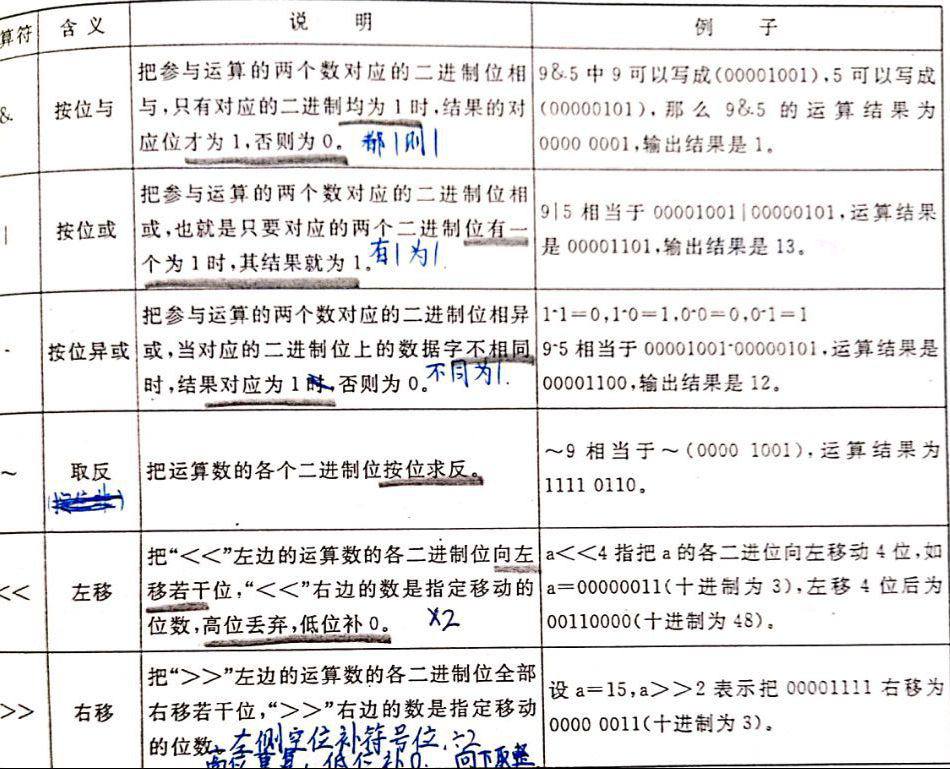 算符 含义 说 明 例 子
& 按位与
把参与运算的两个数对应的二进制位相
与,只有对应的二进制均为1时,结果的对
应位才为1,否则为0。 都1则1
9&5中9可以写成(00001001),5可以写成
(00000101),那么9&5的运算结果为
0000 0001,输出结果是1。
| 按位或
把参与运算的两个数对应的二进制位相
或,也就是只要对应的两个二进制位有一
个为1时,其结果就为1。 有1为1
9|5相当于00001001|00000101,运算结果
是00001101,输出结果是13。
按位异或
把参与运算的两个数对应的二进制位相异
或,当对应的二进制位上的数据字不相同
时,结果对应为1时,否则为0。 不同为1.
1^1=0,1^0=1,0^0=0,0^1=1
9^5相当于00001001^00000101,运算结果是
00001100,输出结果是12。
~ 取反
把运算数的各个二进制位按位求反。
~9相当于~(0000 1001),运算结果为
1111 0110。
<< 左移
把“<<”左边的运算数的各二进制位向左
移若干位,“<<”右边的数是指定移动的
位数,高位丢弃,低位补0。 ×2
a<<4指把a的各二进位向左移动4位,如
a=00000011(十进制为3),左移4位后为
00110000(十进制为48)。
>> 右移
把“>>”左边的运算数的各二进制位全部
右移若干位,“>>”右边的数是指定移动
的位数。左侧空位补符号位. ÷2
低位补0. 向下取整
设a=15,a>>2表示把00001111右移为
0000 0011(十进制为3)。